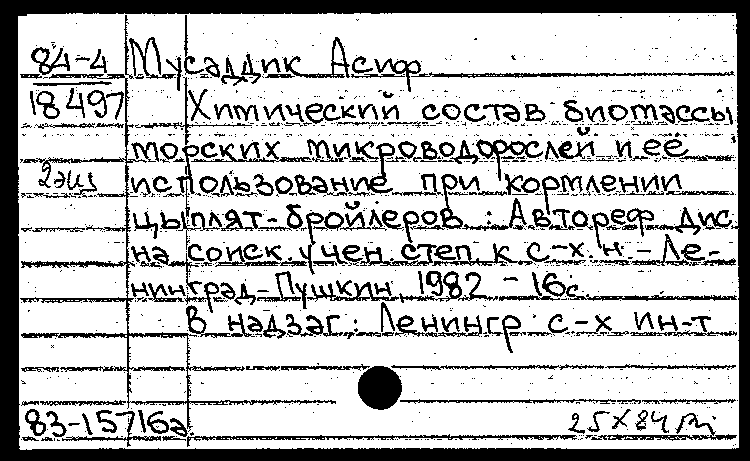 84-4 Мусаддик Асиф
18497 Химический состав биомассы
морских микроводорослей и её
2 экз использование при кормлении
цыплят-бройлеров : Автореф дис
на соиск учен. степ к с-х. н. - Ле-
нинград-Пушкин, 1982 - 16с.
В надзаг.: Ленингр с-х ин-т
83-15716а 25X84